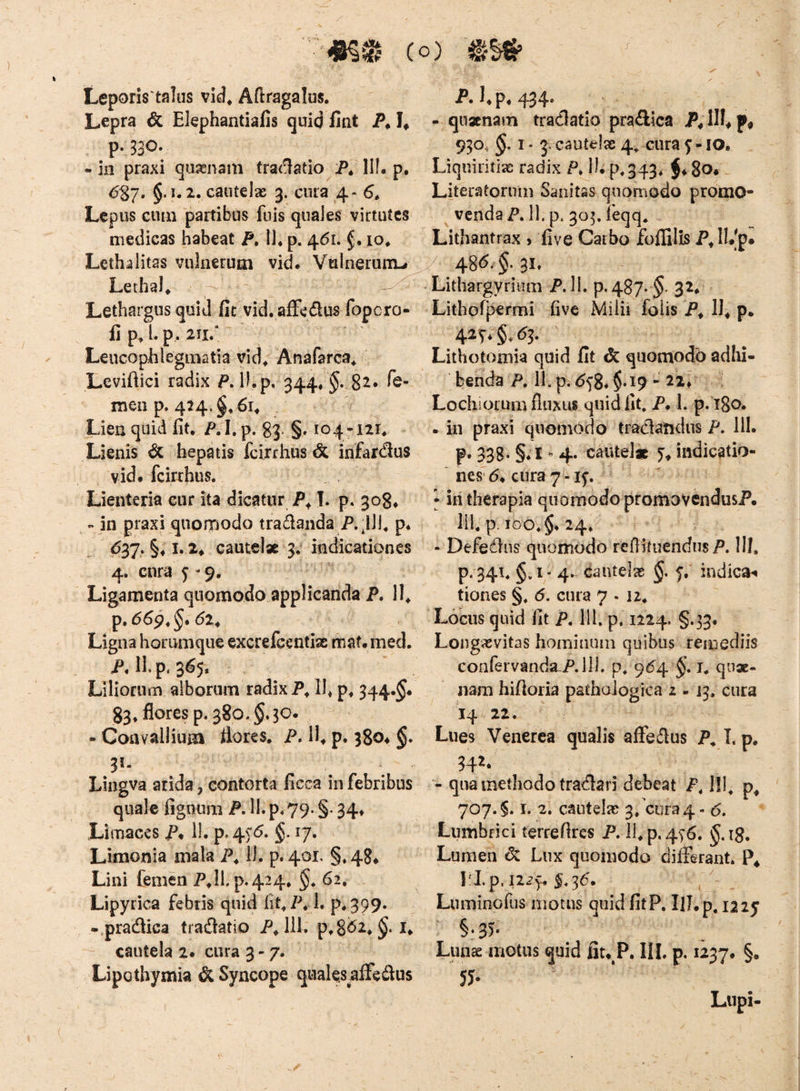 (o)
Leporis talus vid. Aſtragalus.
Lepra & Elephantiaſis quid ſint P. I.
p. 330.
- in praxi quænam tractatio P. III. p.
687. §. 1. 2. cautelæ 3. cura 4 - 6.
Lepus cum partibus ſuis quales virtutes
medicas habeat P. II. p. 461. §. 10.
Lethalitas vulnerum vid. Vulnerum
Lethal.
Lethargus quid ſit vid. affectus ſoporo-
ſi p. I. p. 211.
Leucophlegmatia vid. Anaſarca.
Leviſtici radix P. II. p. 344. §. 82. ſe-
men p. 424. §. 61.
Lien quid ſit. P. I. p. 83 §. 104-121.
Lienis & hepatis ſcirrhus & infarctus
vid. ſcirrhus.
Lienteria cur ita dicatur P. I. p. 308.
- in praxi quomodo tractanda P. III. p.
637. §. 1. 2. cautelæ 3. indicationes
4. cura 5 - 9.
Ligamenta quomodo applicanda P. II.
p. 669. §. 62.
Ligna horumque excreſcentiæ mat. med.
P. II. p. 365.
Liliorum alborum radix P. II. p. 344. §.
83. flores p. 380. §. 30.
- Convallium flores. P. II. p. 380. §.
31.
Lingva arida, contorta ſicca in febribus
quale ſignum P. II. p. 79. §. 34.
Limaces P. II. p. 456. §. 17.
Limonia mala P. II. p. 401. §. 48.
Lini ſemen P. II. p. 424. §. 62.
Lipyrica febris quid ſit. P. I. p. 399.
- practica tractatio P. III. p. 862. §. 1.
cautela 2. cura 3 - 7.
Lipothymia & Syncope quales affectus
P. I. p. 434.
- quænam tractatio practica P. III. p.
930. §. 1 - 3. cautelæ 4. cura 5 - 10.
Liquiritiæ radix P. II. p. 343. §. 80.
Literatorum Sanitas quomodo promo-
venda P. II. p. 303. ſeqq.
Lithantrax, ſive Carbo foſſilis P. II. p.
486. §. 31.
Lithargyrium P. II. p. 487. §. 32.
Lithoſpermi ſive Milii ſolis P. II. p.
425. §. 63.
Lithotomia quid ſit & quomodo adhi-
benda P. II. p. 658. §. 19 - 22.
Lochiorum fluxus quid ſit. P. I. p. 180.
- in praxi quomodo tractandus P. III.
p. 338. §. 1 - 4. cautelæ 5. indicatio-
nes 6. cura 7 - 15.
- in therapia quomodo promovendus P.
III. p. 100. §. 24.
- Defectus quomodo reſtituendus P. III.
p. 341. §. 1 - 4. cautelæ §. 5. indica-
tiones §. 6. cura 7 - 12.
Locus quid ſit P. III. p. 1224. §. 33.
Longævitas hominum quibus remediis
conſervanda P. III. p. 964 §. 1. quæ-
nam hiſtoria pathologica 2 - 13. cura
14 22.
Lues Venerea qualis affectus P. I. p.
342.
- qua methodo tractari debeat P. III. p.
707. §. 1. 2. cautelæ 3. cura 4 - 6.
Lumbrici terreſtres P. II. p. 456. §. 18.
Lumen & Lux quomodo differant. P.
III. p. 1225. §. 36.
Luminoſus motus quid ſit P. III. p. 1225
§. 35.
Lunæ motus quid ſit. P. III. p. 1237. §.
55.
Lupi-